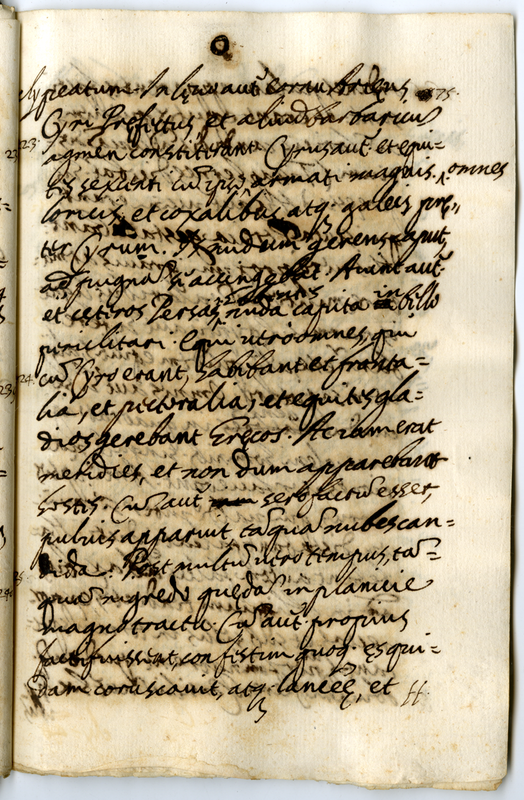 peatum. In lęvo aut̃ cornu
Cyri Pręfectus, et aliud barbaricũ
23.
agmen constiterant Cyrus aut̃. et equi-
tes sexcenti cũ ipso armati magnis omnes
loricis, et coxalibus atq. galeis prę-
ter Cyrum. nudum gerens caput,
ad pugnã accingebat. Aiunt aut̃.
et ceteros Persas nuda capita in bello
periclitari. Equi vero omnes, qui
24.
cũ Cyro erant, habebant et fronta=
lia, et pectoralia, et equites gla=
dios gerebant Gręcos. Ac iam erat
meridies, et non dum apparebant
hostes. Cũ aut̃ sero factũ esset,
pulvis apparuit, tãquã nubes can=
dida. Post multũ vero tempus, tã=
quã nigredo quędã in planicie
magno tractu. Cũ aut̃. propius
facti fuissent, confestim quoq. ęs qui-
dam coruscavit, atq. lanceę, et